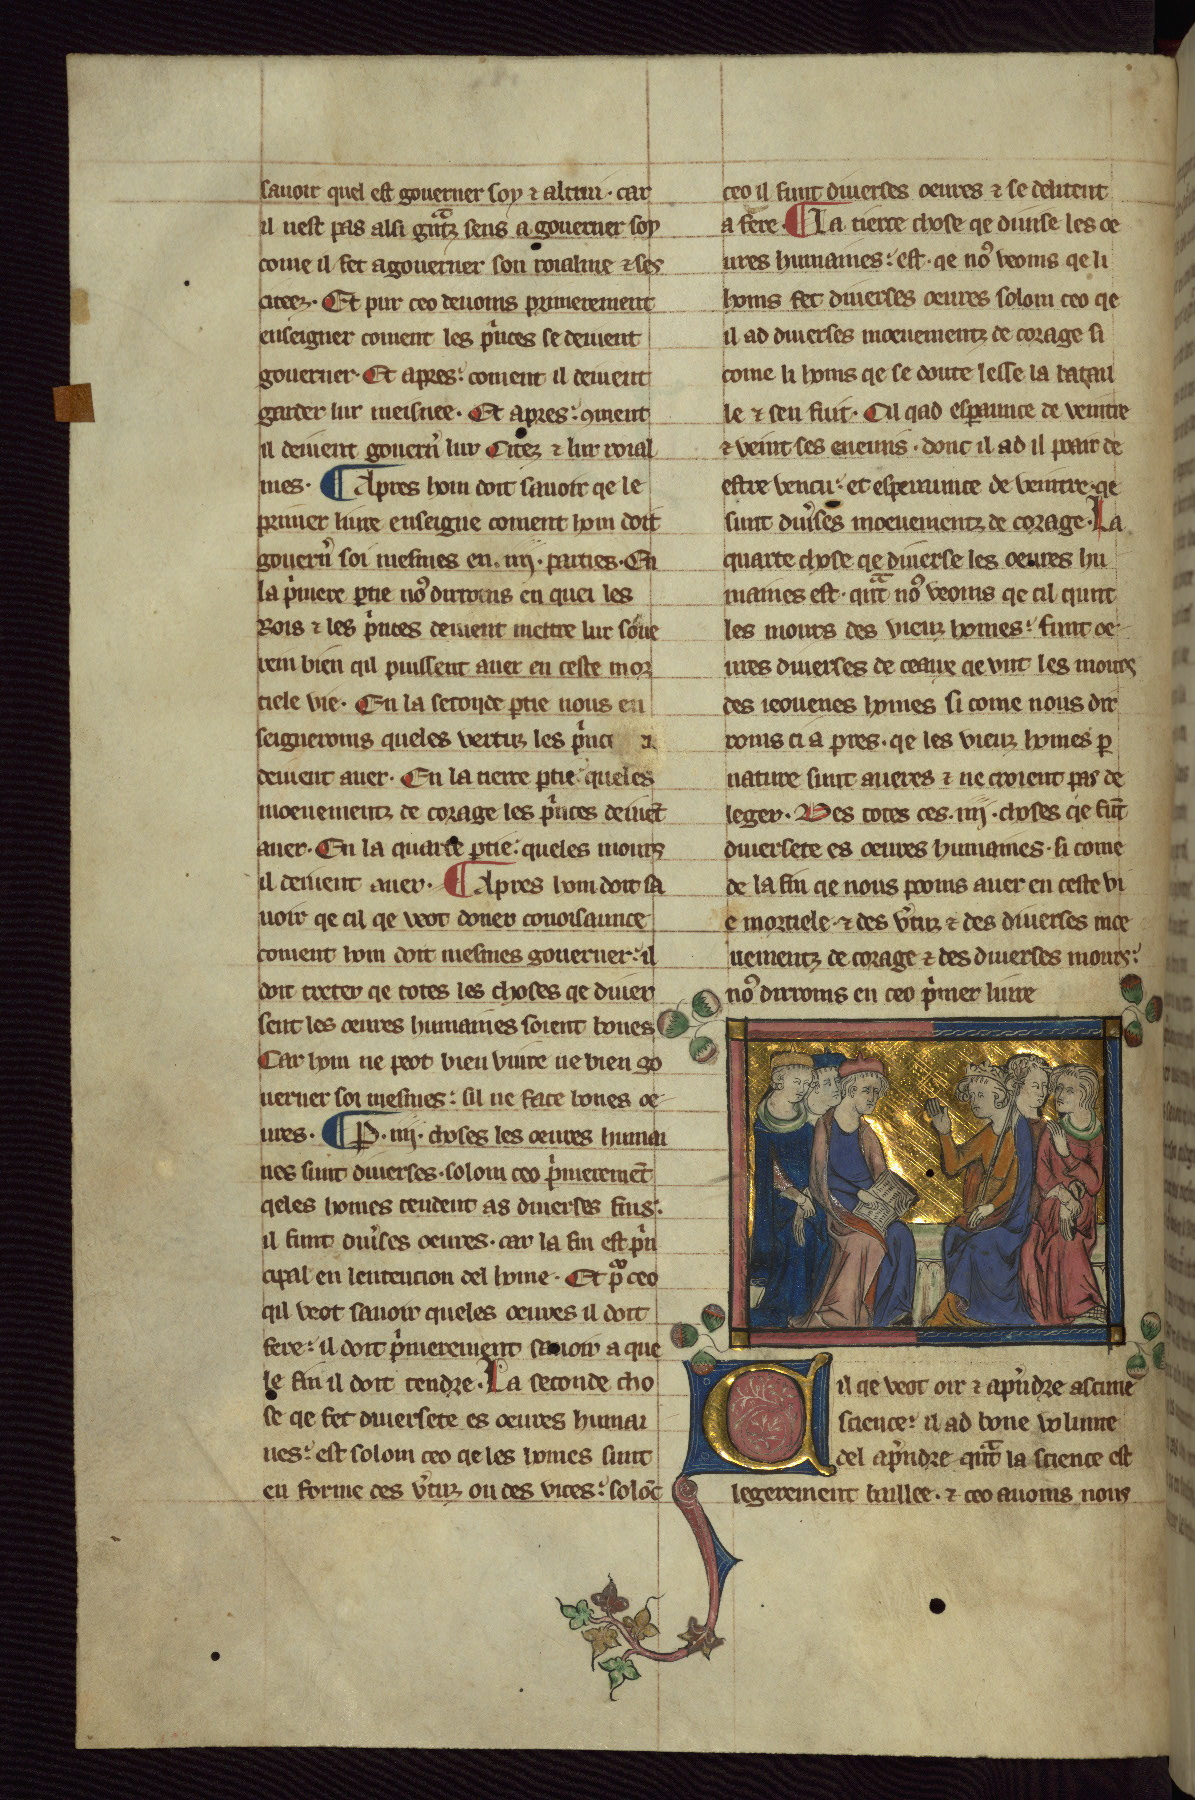 sauoir quel est gouerner soy ⁊ altrui · car
il nest pas alsi gᵃntz sens a gouerner soy
come il fet a gouerner son roialme ⁊ ses
citeez · Et pur ceo deuoms primerement
enseigner coment les pⁱnces se deiuent
gouerner · Et apres: coment il deiuent
garder lur meisnee · Et apres: ꝯment
il deiuent gouern̉ lur Citez ⁊ lur roial
mes · ¶ Apres hom doit sauoir qe le
primer liure enseigne coment hom doit
gouern̉ soi mesmes en · iiij · parties · En
la pⁱmere ꝑtie noꝰ dirroms en quei les
Rois ⁊ les pⁱnces deiuent mettre lur soue
rein bien qil puissent auer en ceste mor
tiele vie · En la seconde ꝑtie nous en
seigneroms queles vertuz les pⁱnc
deiuent auer · En la tierce ꝑtie: queles
moeuementz de corage les pⁱnces deiuēt
auer · En la quarte ꝑtie: queles mours
il deiuent auer · ¶ Apres hom doit sa
uoir qe cil qe veot doner conoisaunce
coment hom doit mesmes gouerner: il
doit treter qe totes les choses qe diuer
sent les oeures humaines soient bones
Car hom ne peot bien viure ne bien go
uerner soi mesmes: sil ne face bones oe
ures · ¶ P · iiij · choses les oeures humai
nes sunt diuerses · solom ceo pⁱmeremēt
qeles homes tendent as diuerses fins:
il funt diu̓ses oeures · car la fin est pⁱn
cipal en lentencion del home · Et pᵒ ceo
qil veot sauoir queles oeures il doit
fere: il doit pⁱmerement sauoir a que
le fin il doit tendre · La seconde cho
se qe fet diuersete es oeures humai
nes: est solom ceo qe les homes sunt
en forme des v̓tuz ou des vices: solōc
ceo il funt diuerses oeures ⁊ se delitent
a fere · ¶ La tierce chose qe diuise les oe
ures humaines: est · qe noꝰ veoms qe li
homs fet diuerses oeures solom ceo qe
il ad diuerses moeuementz de corage si
come li homs qe se doute lesse la batail
le ⁊ sen fuit · Cil qad esperaunce de veintre
⁊ veint ses enemis · donc il ad il pair de
estre vencu: et esperaunce de veintre · qe
sunt diu̓ses moeuementz de corage · La
quarte chose qe diuerse les oeures hu
maines est · qᵃnt noꝰ veoms qe cil qunt
les mours des vieuz homes: funt oe
ures diuerses de ceaux qe vnt les mours
des ieouenes homes si come nous dir
roms ci a pres · qe les vieuz homes ꝑ
nature sunt aueres ⁊ ne croient pas de
leger · Des totes ces · iiij · choses qe fūt
diuersete es oeures humaines · si come
de la fin qe nous poms auer en ceste vi
e mortiele · ⁊ des v̓tuz ⁊ des diuerses moe
uementz de corage ⁊ des diuerses mours:
noꝰ dirroms en ceo pⁱmer liure
Cil qe veot oir ⁊ apn̓dre ascune
science: il ad bone volunte
del apn̓dre qᵃnt la science est
legerement baillee · ⁊ ceo auoms nous